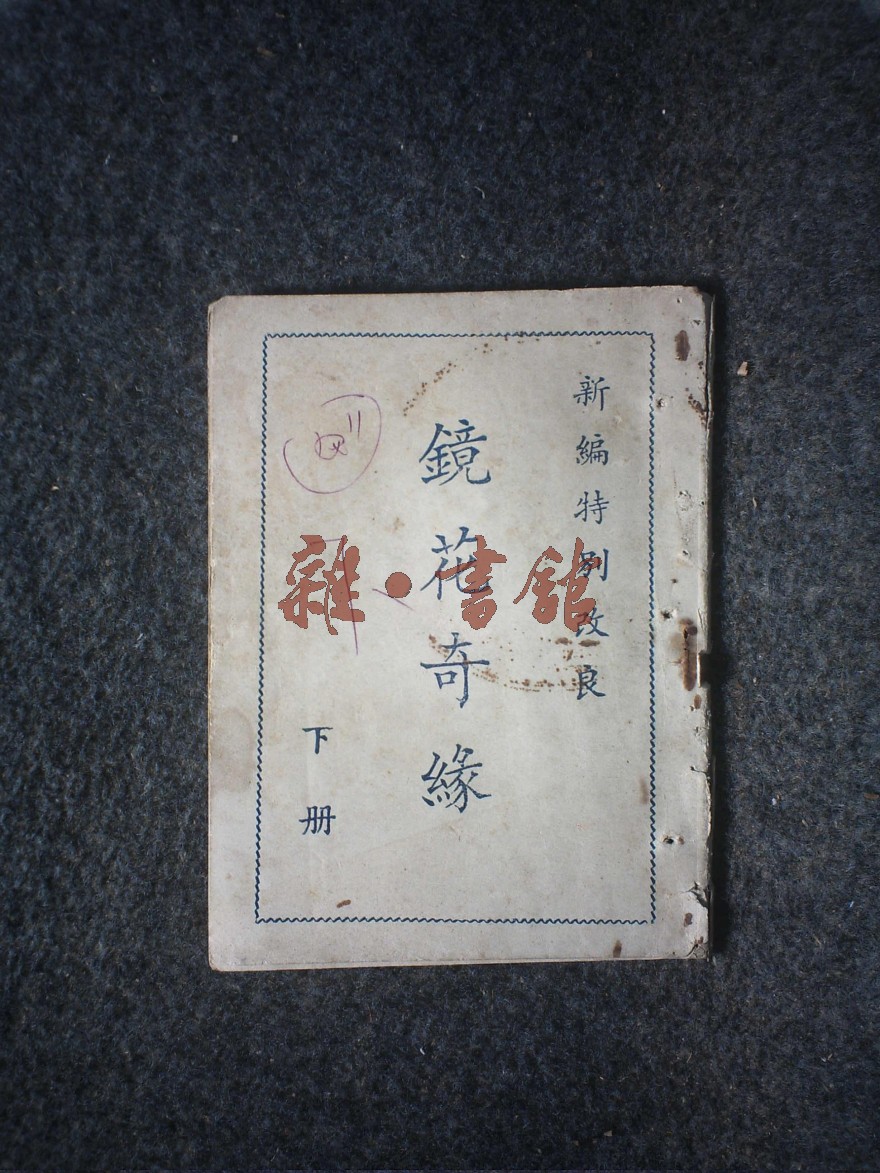 新編特別改良
鏡花奇緣
下册
雜·書館